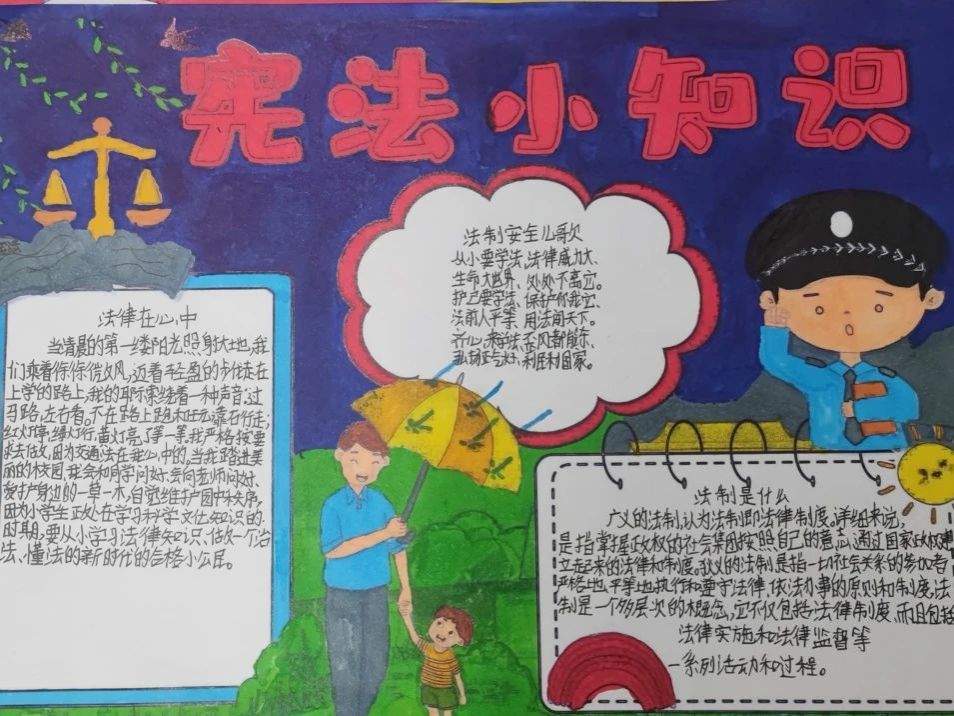 宪法小知识
法制安全儿歌
从小要学法,法律威力大、
生命大世界、处处不离它。
护己要学法、保护你我它、
法前人平等、用法闯天下。
齐心,来持法、歪风都能东、
弘扬正气好、利民利国家。
法律在心中
当清晨的第一缕阳光照射大地,我
们乘着徐徐微风,迈着轻盈的步伐走在
上学的路上,我的耳际萦绕着一种声音:过
马路,左右看。不在路上跑和玩,靠右行走;
红灯停,绿灯行,黄灯亮了等一等。我严格按要
求去做,因为交通法在我心中的。当我踏进美
丽的校园,我会和同学问好,会向老师问好.
爱护身边的一草一木,自觉维护园中秩序,
因为小学生正处在学习科学文化知识的
时期,要从小学习法律知识、做一个治
法、懂法的新时代的合格小公民。
法制是什么
广义的法制,认为法制即法律制度。详细来说,
是指掌握政权的社会集团按照自己的意志,通过国家政权建
立起来的法律和制度。狭义的法制是指一切社会关系的参加者
严格地,平等地执行和遵守法律,依法办事的原则和制度,法
制是一个多层次的概念,它不仅包括法律制度,而且包括
法律实施和法律监督等
一系列活动和过程。